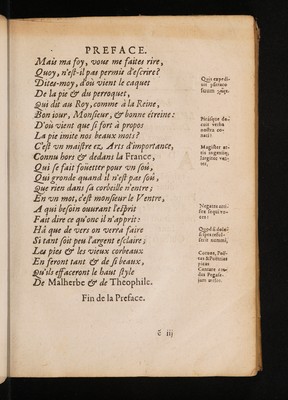 PREFACE.
Mais ma foy, vous me faites rire,
Quoy, n'est-il pas permis d'escrire?
Dites-moy, d'où vient le caquet
De la pie & du perroquet,
Qui dit au Roy, comme à la Reine,
Bon iour, Monsieur, & bonne étreine:
D'où vient que si fort à propos
La pie imite nos beaux mots?
C'est vn maistre ez Arts d'importance,
Connu hors & dedans la France,
Qui se fait foüetter pour vn soû,
Qui gronde quand il n'est pas soû,
Que rien dans sa corbeille n'entre;
En vn mot, c'est monsieur le Ventre,
A qui besoin ouurant l'esprit
Fait dire ce qu'onc il n'apprit:
Hà que de vers on verra faire
Si tant soit peu l'argent esclaire;
Les pies & les vieux corbeaux
En feront tant & de si beaux,
Qu'ils effaceront le haut style
De Malherbe & de Theophile.
Fin de la Preface.
Quis expedi-
uit psittaco
suum χαῖρε
Picásque do-
cuit verba
nostra co-
nari?
Magister ar-
tis ingenìíq;
largitor ven-
ter,
Negatas arti-
fex sequi vo-
ces:
Quod si dolo-
si spes reful-
serit nummi,
Coruos, Poë-
tas & Poëtrias
picas
Cantare cre-
das Pegase-
ium melos.
ẽ iij